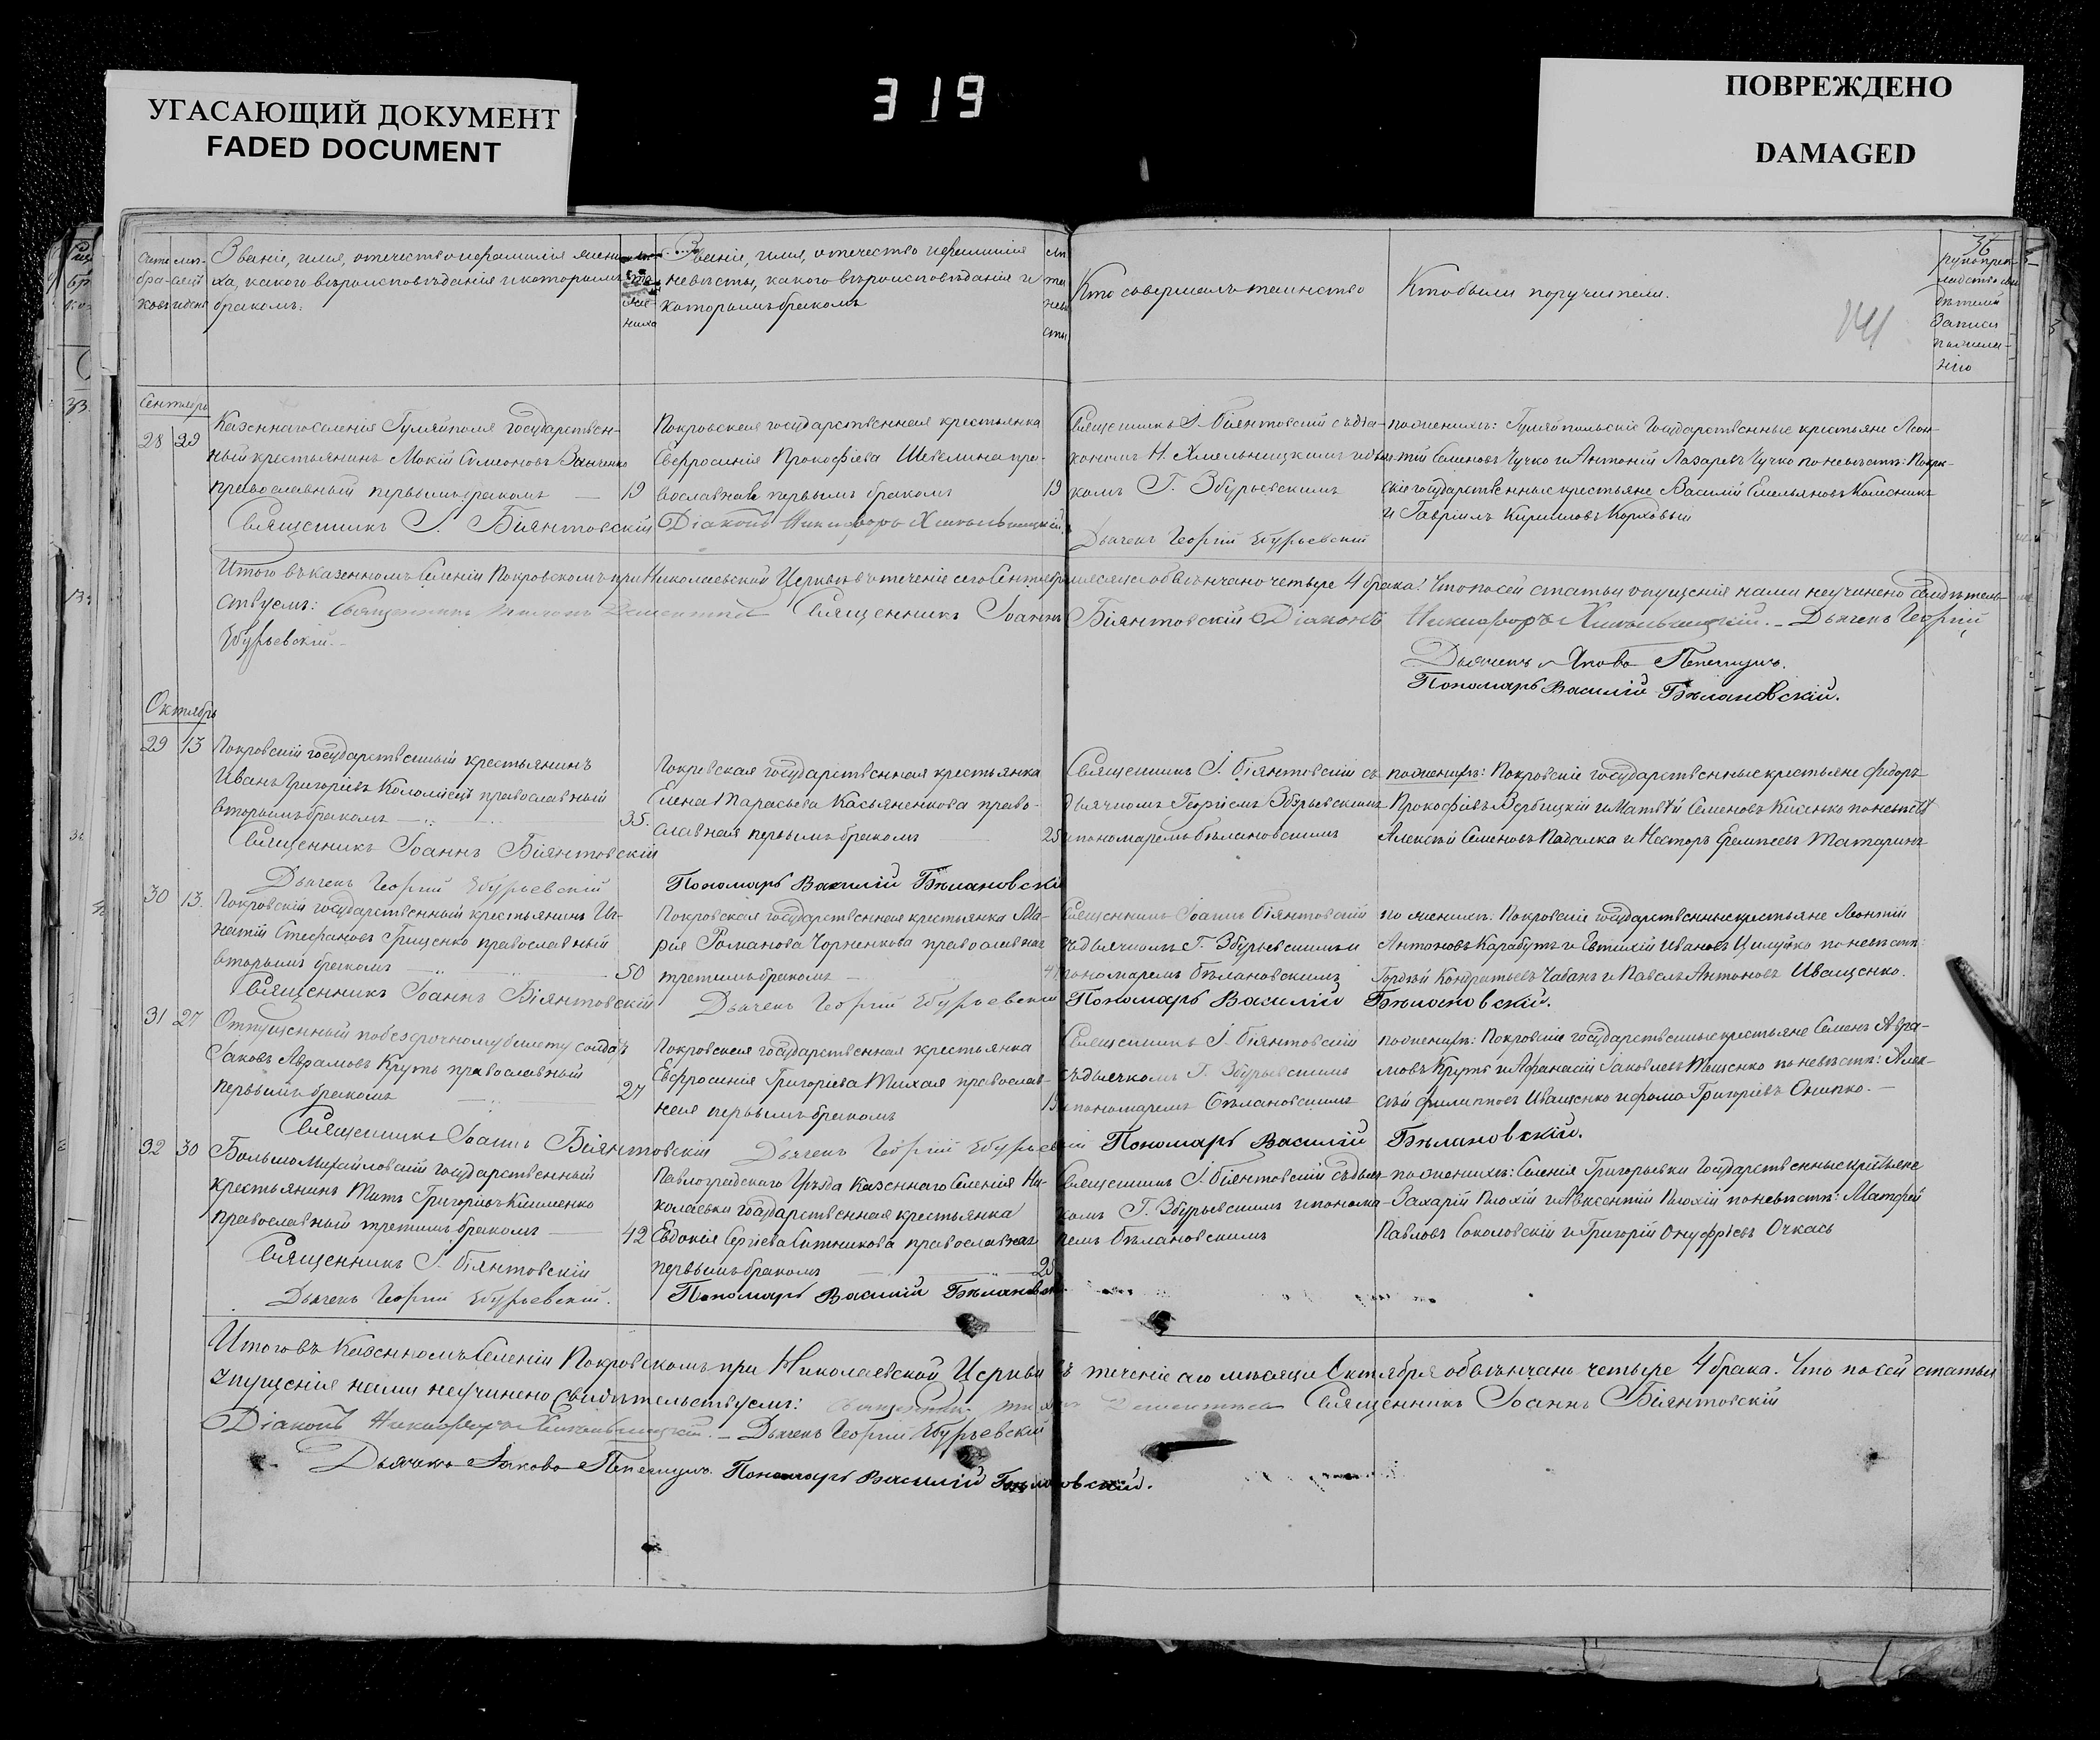 УГАСАЮЩИЙ ДОКУМЕНТ
FADED DOCUMENT
319
ПОВРЕЖДЕНО
DAMAGED
36
Званіе, имя, отчество и фамилія жени-
ха, какого вѣроисповѣданія и которымъ
бракомъ.
Званіе, имя, отчество и фамилія
невѣсты, какого вѣроисповѣданія и
которымъ бракомъ
Кто совершалъ таинство
Кто были поручители.
Сентябрь
28 29
Казеннаго Селенія Гуляйполя государствен-
ный крестьянинъ Мокій Симеоновъ Занченко
православный первымъ бракомъ 19
Священникъ І. Біянтовскій
Покровская государственная крестьянка
Евфросинія Прокофіева Шевелина пра-
вославная первымъ бракомъ 19
Діаконъ Никифоръ Хмельницкій
Священникъ І. Біянтовскій съ діа-
кономъ Н. Хмельницкимъ и дьяч-
комъ Г. Збурьевскимъ
Дьячекъ Георгій Збурьевскій
по женихѣ: Гуляйпольскіе Государственные крестьяне Леон-
тій Семеновъ Чучко и Антоній Лазаревъ Чучко по невѣстѣ: Покров-
скіе государственные крестьяне Василій Емельяновъ Колесникъ
и Гавріилъ Кирилловъ Корховый
Итого въ казенномъ Селеніи Покровскомъ при Николаевской Церкви въ теченіе сего Сентября мѣсяца обвѣнчано четыре 4 брака. Что по сей статьи опущенія нами неучинено Свидѣтель-
ствуемъ: Священникъ Священникъ Іоаннъ Біянтовскій Діаконъ Никифоръ Хмельницкій. Дьячекъ Георгій
Збурьевскій.
Дьячекъ Яковъ
Пономарь Василій Бѣлановскій.
Октябрь
29 13
Покровскій государственный крестьянинъ
Иванъ Григорьевъ Коломіецъ православный
вторымъ бракомъ 35.
Священникъ Іоаннъ Біянтовскій
Дьячекъ Георгій Збурьевскій
Покровская государственная крестьянка
Елена Тарасьева Касьяненкова право-
славная первымъ бракомъ 25
Пономарь Василій Бѣлановскій
Священникъ І. Біянтовскій съ
дьячкомъ Георгіемъ Збурьевскимъ
и пономаремъ Бѣлановскимъ
по женихѣ: Покровскіе государственные крестьяне Федоръ
Прокофіевъ Вербицкій и Матвѣй Семеновъ Кисенко по невѣстѣ
Алексѣй Семеновъ Падалка и Несторъ Татаринъ
30 13.
Покровскій государственный крестьянинъ Иг-
натій Стефановъ Грищенко православный
вторымъ бракомъ 50
Священникъ Іоаннъ Біянтовскій
Покровская государственная крестьянка Ма-
рія Романова Чорненкова православная
третимъ бракомъ
Дьячекъ Георгій Збурьевскій
Священникъ Іоаннъ Біянтовскій
съ дьячкомъ Г. Збурьевскимъ и
пономаремъ Бѣлановскимъ
Пономарь Василій Бѣлановскій.
по женихѣ: Покровскіе государственные крестьяне Леонтій
Антоновъ Карабутъ и Евтихій Ивановъ Цилуйко по невѣстѣ:
Гордѣй Кондратьевъ Чабанъ и Павелъ Антоновъ Иващенко.
31 27
Отпущенный по безсрочному билету солдатъ
Іаковъ Аврамовъ Крутъ православный
первымъ бракомъ 27
Священникъ Іоаннъ Біянтовскій
Покровская государственная крестьянка
Евфросинія Григоріева Тихая православ-
ная первымъ бракомъ
Дьячекъ Георгій Збурьевскій
Священникъ І. Біянтовскій
съ дьячкомъ Г. Збурьевскимъ
и пономаремъ Бѣлановскимъ
Пономарь Василій Бѣлановскій.
по женихѣ: Покровскіе государственные крестьяне Семенъ Авра-
мовъ Крутъ и Афанасій Іаковлевъ Тещенко по невѣстѣ: Алек-
сѣй Филиповъ Иващенко и Фома Григоріевъ Онипко.
32 30
Большо Михайловскій государственный
крестьянинъ Титъ Григоріевъ Клименко
православный третимъ бракомъ 42
Священникъ І. Біянтовскій
Дьячекъ Георгій Збурьевскій.
Павлоградского Уѣзда Казеннаго Селенія Ни-
колаевки государственная крестьянка
Евдокія Сергіева Ситникова православная
первымъ бракомъ
Пономарь Василій Бѣлановскій
Священникъ І. Біянтовскій съ дьяч-
комъ Г. Збурьевскимъ и понома-
ремъ Бѣлановскимъ
по женихѣ: Селенія Григорьевки Государственные крестьяне
Захарій Плохій и Авксентій Плохій по невѣстѣ: Матфей
Павловъ Соколовскій и Григорій Онуфріевъ Очкась
Итого въ Казенномъ Селеніи Покровскомъ при Николаевской Церкви въ теченіе сего мѣсяца Октября обвѣнчано четыре 4 брака. Что по сей статьи
упущенія нами неучинено Свидѣтельствуемъ: Священникъ Священникъ Іоаннъ Біянтовскій
Діаконъ Никифоръ Хмельницкій. Дьячекъ Георгій Збурьевскій
Дьячекъ Яковъ Пономарь Василій Бѣлановскій.